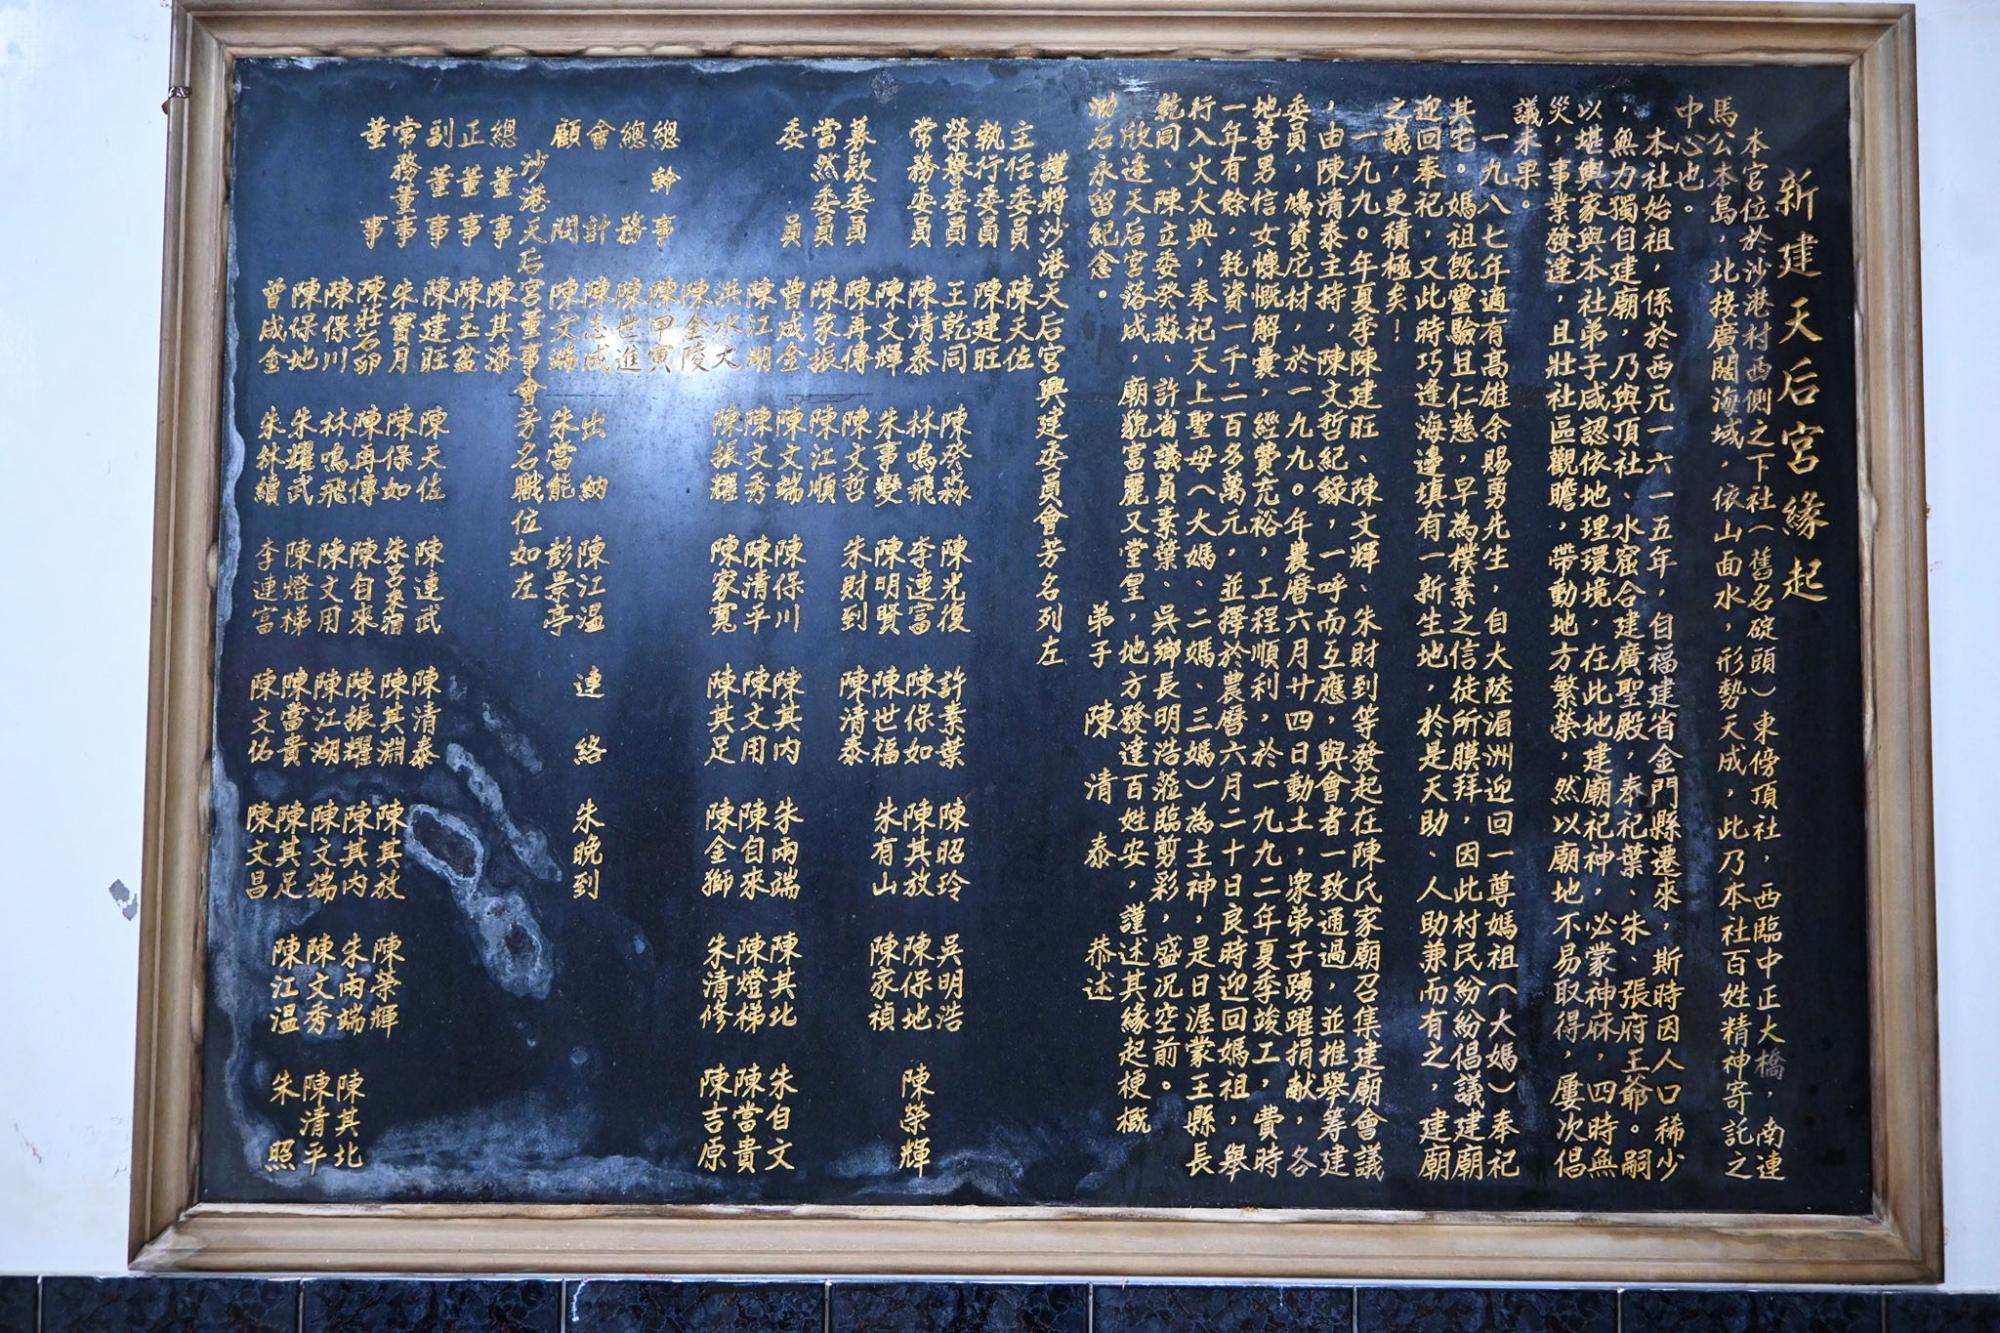 新建天后宮緣起
本宮位於沙港村西側之下社（舊名碇頭）東傍頂社，西臨中正大橋，南連
馬公本島，北接廣闊海域，依山面水，形勢天成，此乃本社百姓精神寄託之
中心也。
本社始祖，係於西元一六一五年，自福建省金門縣遷來，斯時因人口稀少
，無力獨自建廟，乃與頂社、水窟合建廣聖殿，奉祀葉、朱、張府王爺。嗣
以堪輿家與本社弟子咸認依地理環境，在此地建廟祀神，必蒙神庥，四時無
災，事業發達，且壯社區觀瞻，帶動地方繁榮，然以廟地不易取得，屢次倡
議未果。
一九八七年適有高雄余賜勇先生，自大陸湄洲迎回一尊媽祖（大媽）奉祀
其宅。媽祖既靈驗且仁慈，早為樸素之信徒所膜拜，因此村民紛紛倡議建廟
迎回奉祀，又此時巧逢海邊填有一新生地，於是天助、人助兼而有之，建廟
之議，更積極矣！
一九九０年夏季陳建旺、陳文輝、朱財到等發起在陳氏家廟召集建廟會議
，由陳清泰主持，陳文哲紀錄，一呼而互應，與會者一致通過，並推舉籌建
委員，鳩資庀材，於一九九０年農曆六月廿四日動土，眾弟子踴躍捐献，各
地善男信女慷慨解囊，經費充裕，工程順利，於一九九二年夏季竣工，費時
一年有餘，耗資一千二百多萬元，並擇於農曆六月二十日良時迎回媽祖，舉
行入火大典，奉祀天上聖母（大媽、二媽、三媽）為主神，是日渥蒙王縣長
乾同、陳立委癸淼、許省議員素葉、吳鄉長明浩蒞臨剪彩，盛况空前。
欣逢天后宮落成，廟貌富麗又堂皇，地方發達百姓安，謹述其緣起梗概
泐石永留紀念。
弟子 陳清泰 恭述
謹將沙港天后宮興建委員會芳名列左
主任委員 陳天佐
執行委員 陳建旺
榮譽委員 王乾同 陳癸淼 陳光復 許素葉 陳昭玲 吳明浩
常務委員 陳清泰 林鳴飛 李連富 陳保如 陳其放 陳保地 陳榮輝
陳文輝 朱事變 陳明賢 陳世福 朱有山 陳家禎
募款委員 陳再傳 陳文哲 朱財到 陳清泰
當然委員 陳家振 陳江順
委員 曾成金 陳文端 陳保川 陳其內 朱兩端 陳其北 朱自文
陳江湖 陳文秀 陳清平 陳文用 陳自來 陳燈梯 陳當貴
洪水大 陳振耀 陳家寬 陳其足 陳金獅 朱清修 陳吉原
陳金陵
總幹事 陳甲寅
總務 陳世進
會計 陳志成 出納 陳江温 連絡 朱晚到
顧問 陳文端 朱當能 彭景亭
沙港天后宮董事會芳名職位如左
總董事 陳其添
正董事 陳玉盆
副董事 陳建旺 陳天佐 陳連武 陳清泰
常務董事 朱寶月 陳保如 陳其淵 陳其放 陳榮輝
董事 陳莊石卯 陳再傳 陳自來 陳振耀 陳其內 朱兩端 陳其北
陳保川 林鳴飛 陳文用 陳江湖 陳文端 陳文秀 陳清平
陳保地 朱耀武 陳燈梯 陳當貴 陳其足 陳江温 朱照
曾成金 李連富 陳文佑 陳文昌